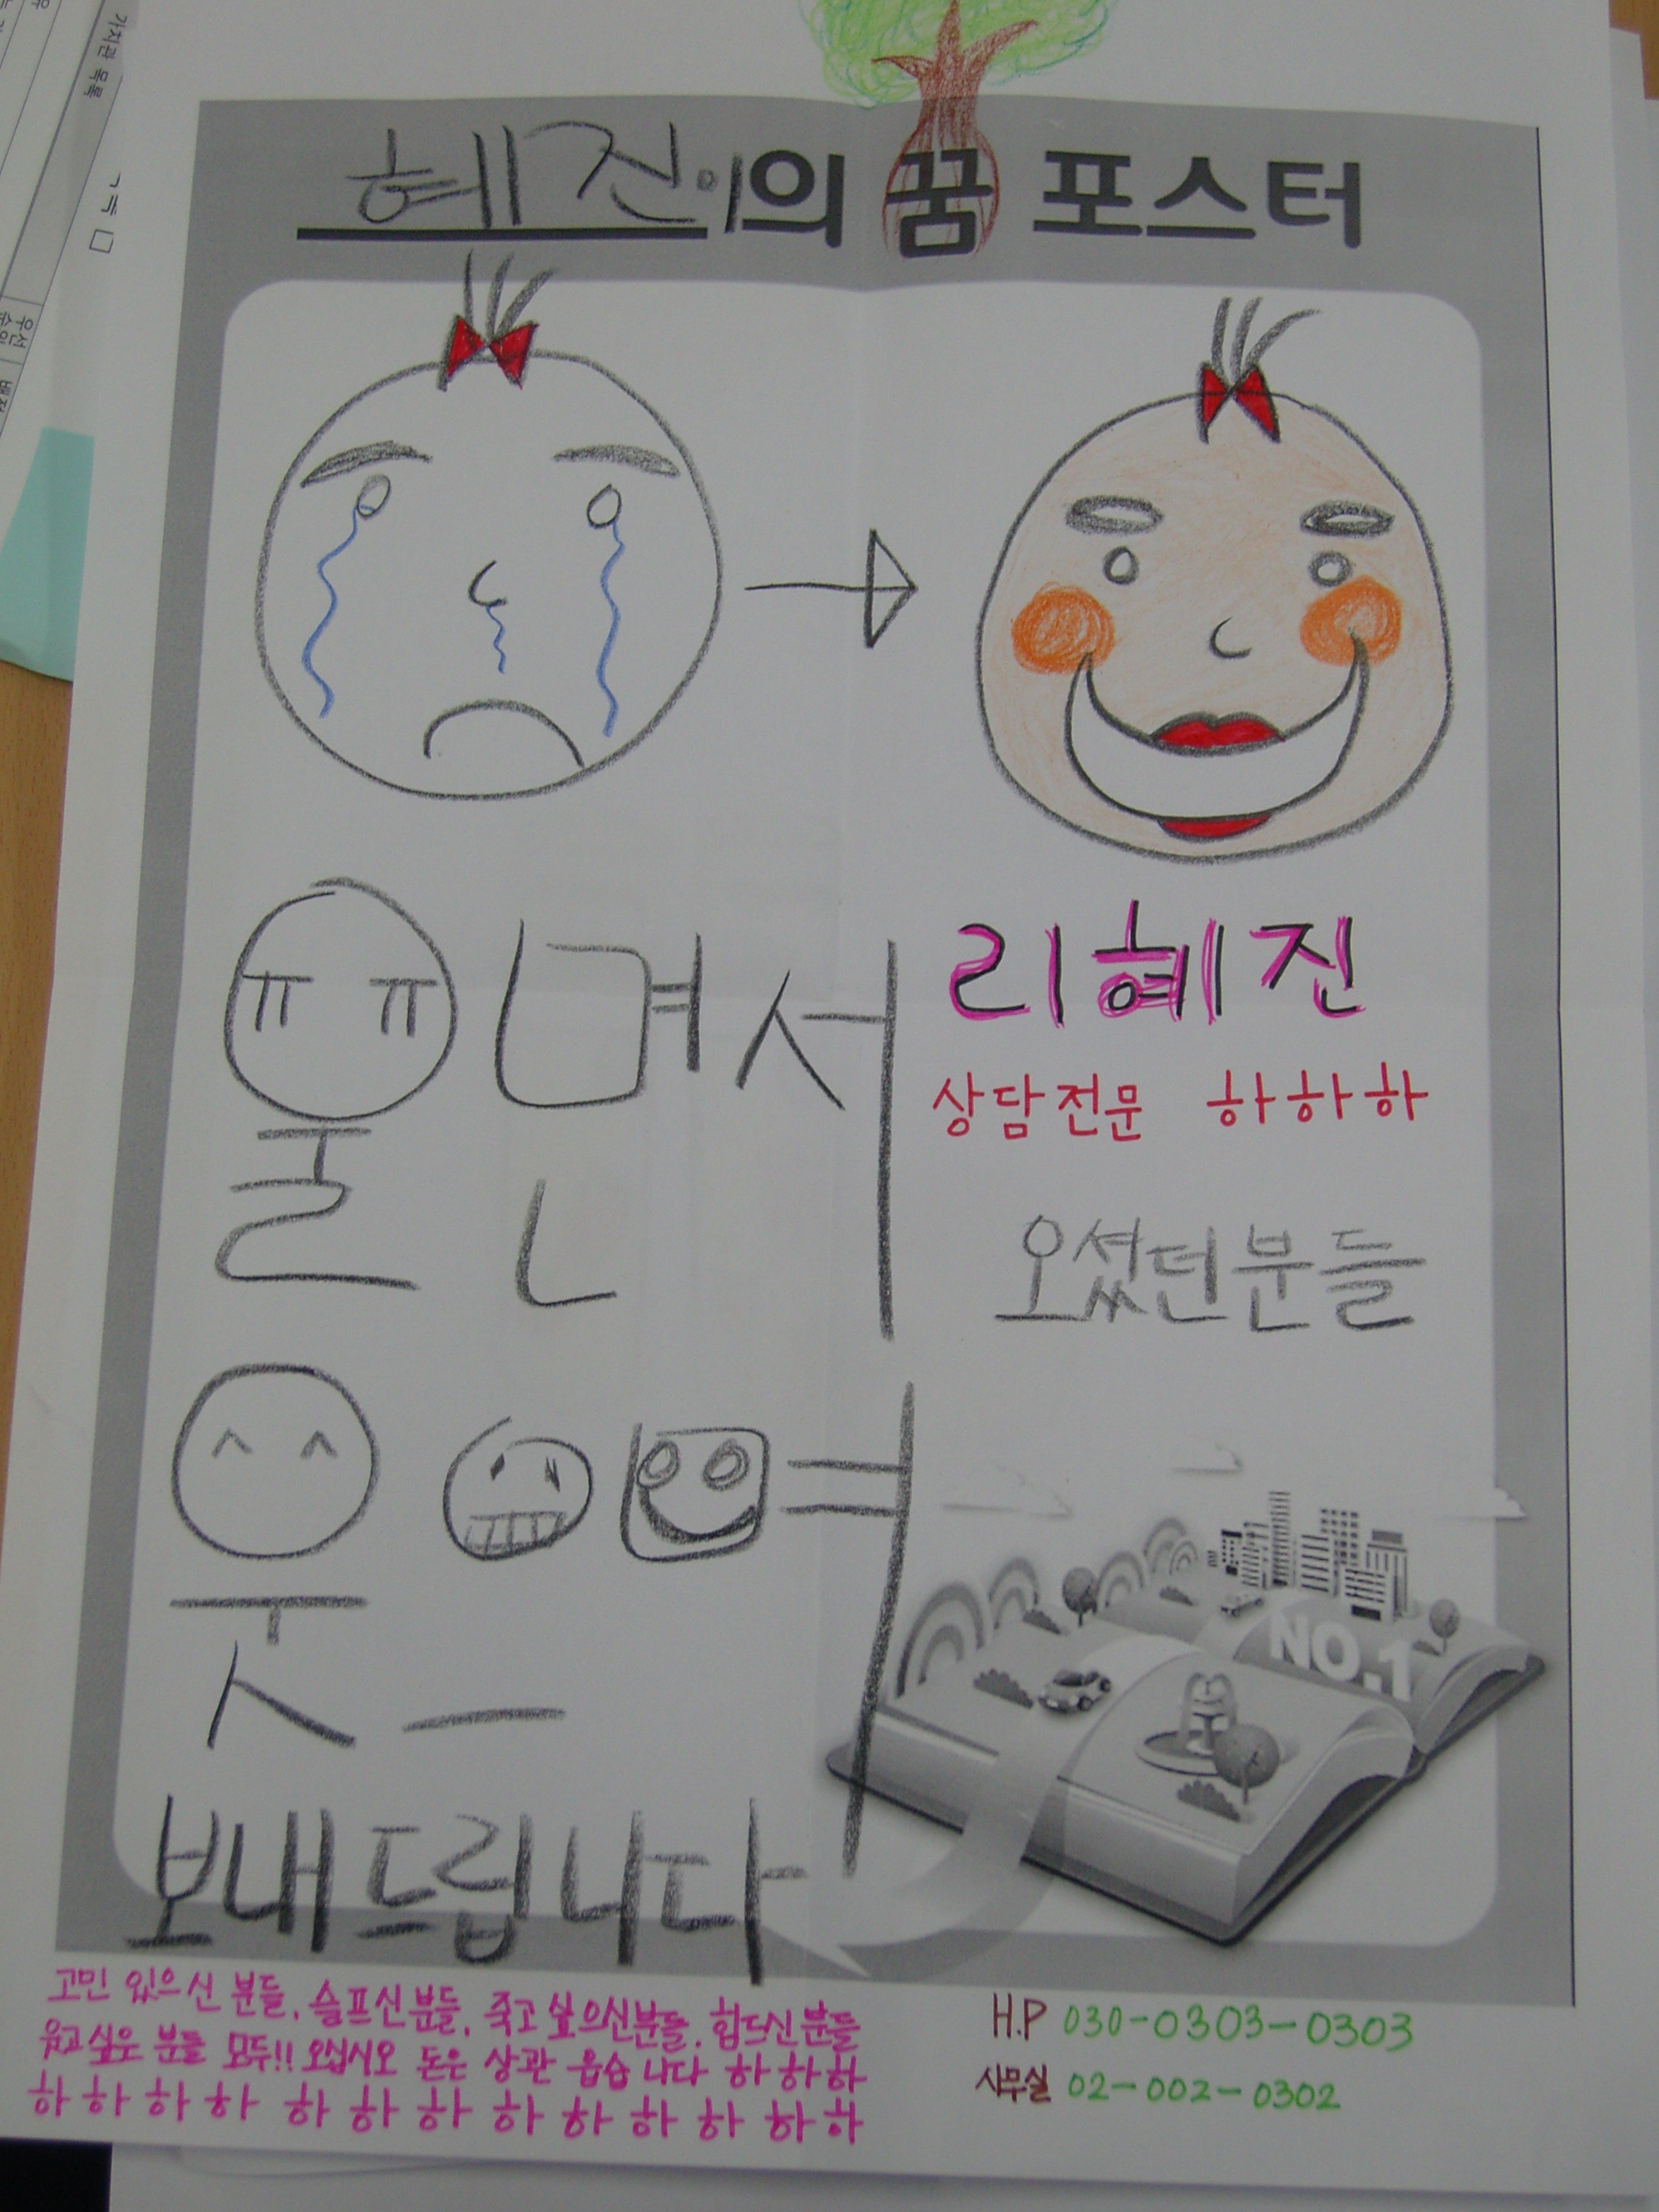 가치관 목록
혜진이의 꿈 포스터
리혜진
상담전문 하하하
울면서 오셨던분들
웃으며
NO.1
보내드립니다
고민 있으신 분들, 슬프신분들, 죽고 싶으신분들, 힘드신 분들
웃고싶은 분들 모두!! 오십시오 돈은 상관 읍습니다 하하하
하하하하 하하하하하하하하하
H.P 030-0303-0303
사무실 02-002-0302